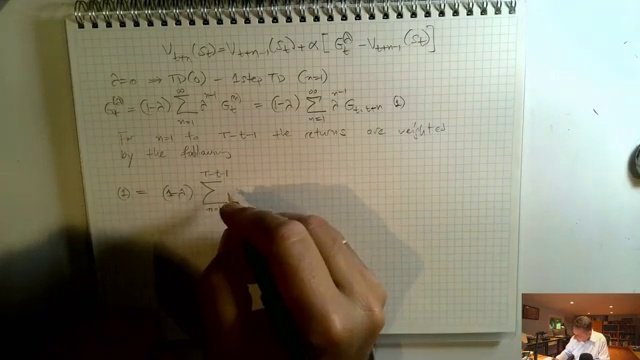 V_{t+n}(S_t) = V_{t+n-1}(S_t) + α [ G_t^{(λ)} - V_{t+n-1}(S_t) ]
λ=0 ⇒ TD(0) - 1 step TD (n=1)
G_t^{(λ)} = (1-λ) ∑_{n=1}^{∞} λ^{n-1} G_t^{(n)} = (1-λ) ∑_{n=1}^{∞} λ^{n-1} G_{t:t+n} (1)
For n=1 to T-t-1 the returns are weighted
by the following
(1) = (1-λ) ∑^{T-t-1}